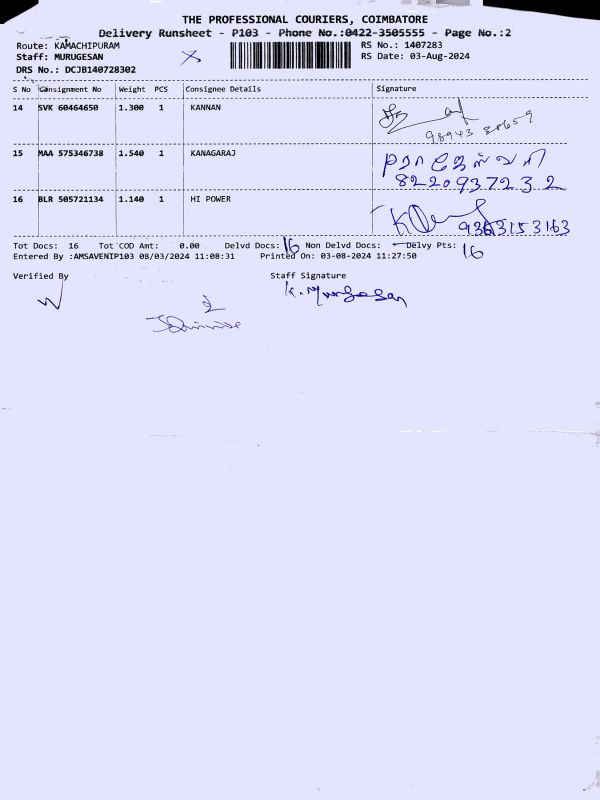 THE PROFESSIONAL COURIERS, COIMBATORE
Delivery Runsheet - P103 - Phone No.:0422-3505555 - Page No.:2
Route: KAMACHIPURAM
RS No.: 1407283
Staff: MURUGESAN
RS Date: 03-Aug-2024
DRS No.: DCJB140728302
S No Consignment No Weight PCS Consignee Details Signature
14 SVK 60464650 1.300 1 KANNAN
15 MAA 575346738 1.540 1 KANAGARAJ
8220937232
16 BLR 505721134 1.140 1 HI POWER
9363153163
Tot Docs: 16 Tot COD Amt: 0.00 Delvd Docs: 16 Non Delvd Docs: Delvy Pts: 16
Entered By :AMSAVENIP103 08/03/2024 11:08:31 Printed On: 03-08-2024 11:27:50
Verified By Staff Signature
K. Murugesan